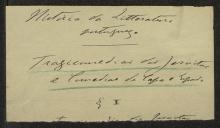 Historia da Litteratura
portugueza.
Tragicomedias dos Jesuitas
e Comedias de Capa e Espada.
§ I